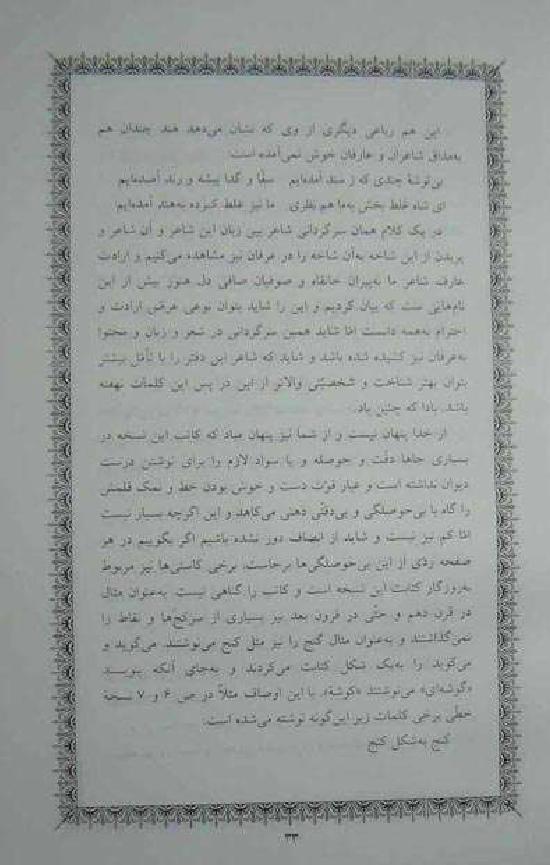 این هم رباعی دیگری از وی که نشان می‌دهد هند چندان هم
به‌مذاق شاعران و عارفان خوش نمی‌آمده است:
بی‌توشهٔ چندی که ز سند آمده‌ایم سقا و گدا پیشه و رند آمده‌ایم
ای شاه غلط بخش به‌ما هم نظری ما نیز غلط کرده به‌هند آمده‌ایم
در یک کلام همان سرگردانی شاعر بین زبان این شاعر و آن شاعر و
پریدن از این شاخه به‌آن شاخه را در عرفان نیز مشاهده می‌کنیم و ارادت
عارف شاعر ما به‌پیران خانقاه و صوفیان صافی دل هنوز بیش از این
نام‌هائی ست که بیان کردیم و این را شاید بتوان نوعی عرض ارادت و
احترام به‌همه دانست امّا شاید همین سرگردانی در شعر و زبان و محتوا
به‌عرفان نیز کشیده شده باشد و شاید که شاعر این دفتر را با تأمّل بیشتر
بتوان بهتر شناخت و شخصیّتی والاتر از این در پس این کلمات نهفته
باشد. بادا که چنین باد.
از خدا پنهان نیست و از شما نیز پنهان مباد که کاتب این نسخه در
بسیاری جاها دقّت و حوصله و یا سواد لازم را برای نوشتن درست
دیوان نداشته است و عیار قوّت دست و خوش بودن خط و نمک قلمش
را گاه با بی‌حوصلگی و بی‌دقّتی ذهنی می‌کاهد و این اگرچه بسیار نیست
امّا کم نیز نیست و شاید از انصاف دور نشده باشیم اگر بگوییم در هر
صفحه ردّی از این بی‌حوصلگی‌ها برجاست، برخی کاستی‌ها نیز مربوط
به‌روزگار کتابت این نسخه است و کاتب را گناهی نیست. به‌عنوان مثال
در قرن دهم و حتّی در قرون بعد نیز بسیاری از سرکج‌ها و نقاط را
نمی‌گذاشتند و به‌عنوان مثال گنج را نیز مثل کنج می‌نوشتند. می‌گوید و
می‌کوید را به‌یک شکل کتابت می‌کردند و به‌جای آنکه بنویسد
«گوشه‌ای» می‌نوشتند «کوشهٔ». با این اوصاف مثلاً در ص ۶ و ۷ نسخهٔ
خطّی برخی کلمات زیر این‌گونه نوشته می‌شده است.
گنج به‌شکل کنج
۳۳